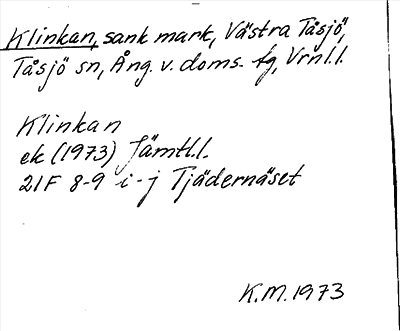 Klinkan, sank mark, Västra Tåsjö,
Tåsjö sn, Ång. v. doms. fg, Vrnl.l.
Klinkan
ek (1973) Jämtl.l.
21F 8-9 i-j Tjädernäset
K.M. 1973